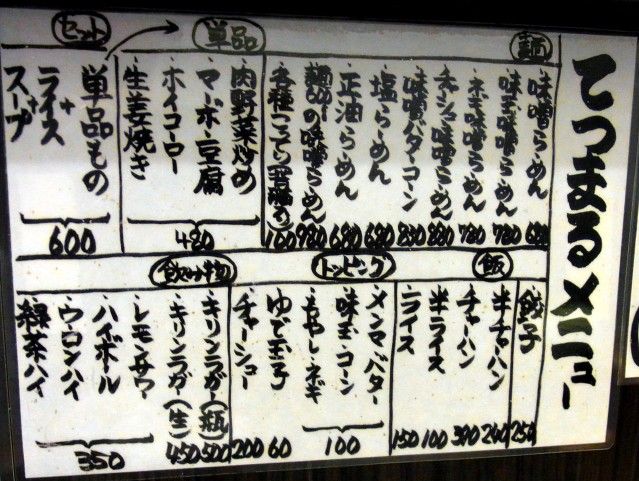 てつまるメニュー
麺
味噌らーめん 680
味玉味噌らーめん 780
ネギ味噌らーめん 780
チャーシュー味噌らーめん 880
味噌バターコーン 830
塩らーめん 680
正油らーめん 680
の味噌らーめん 980
各種こってり 100
単品
肉野菜炒め
マーボー豆腐
ホイコーロー
生姜焼き
480
セット
単品もの
+
ライス
+
スープ
600
餃子 250
飯
半チャーハン 240
チャーハン 390
半ライス 100
ライス 150
トッピング
メンマ・バター
味玉・コーン
もやし・ネギ
100
ゆで玉子 60
チャーシュー 200
飲み物
キリンラガー(瓶) 500
キリンラガー(生) 450
レモンサワー
ハイボール
ウーロンハイ
緑茶ハイ
350